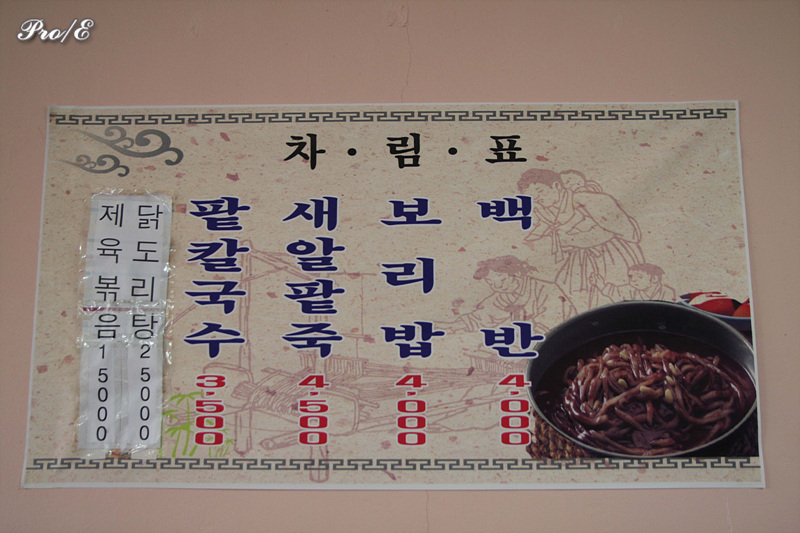 Pro/E
차·림·표
백반 4,000
보리밥 4,000
새알팥죽 4,500
팥칼국수 3,500
닭도리탕 25000
제육볶음 15000